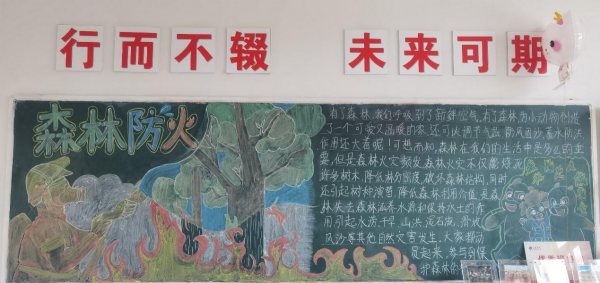 行而不辍 未来可期
森林防火
有了森林,我们呼吸到了新鲜空气,有了森林,为小动物创造
了一个可爱又温暖的家,还可以调节气温,防风固沙,蓄水防洪
作用还大着呢!可想而知,森林在我们的生活中是多么的重
要,但是森林火灾频发,森林火灾不仅能烧死
许多树木,降低林分密度,破坏森林结构,同时
还引起树种演替,降低森林利用价值,是森
林失去森林涵养水源和保持水土的作
用,引起水涝,干旱,山洪,泥石流,滑坡
风沙等其他自然灾害发生,大家都动
员起来,参与到保
护森林的